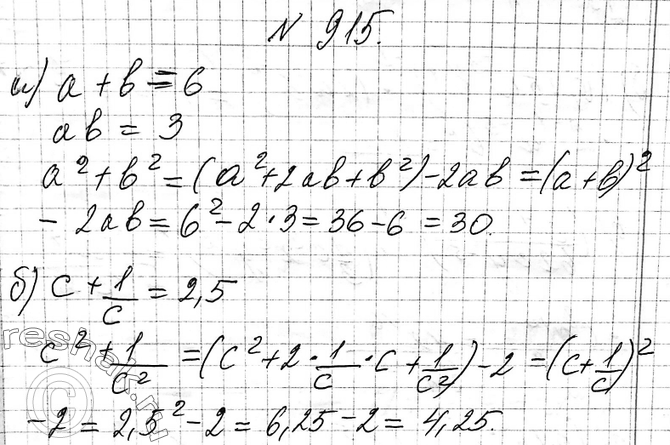 № 915.
а) a + b = 6
ab = 3
a² + b² = (a² + 2ab + b²) - 2ab = (a + b)²
- 2ab = 6² - 2 · 3 = 36 - 6 = 30.
б) c + 1/c = 2,5
c² + 1/c² = (c² + 2 · 1/c · c + 1/c²) - 2 = (c + 1/c)²
- 2 = 2,5² - 2 = 6,25 - 2 = 4,25.
reshak.ru
©